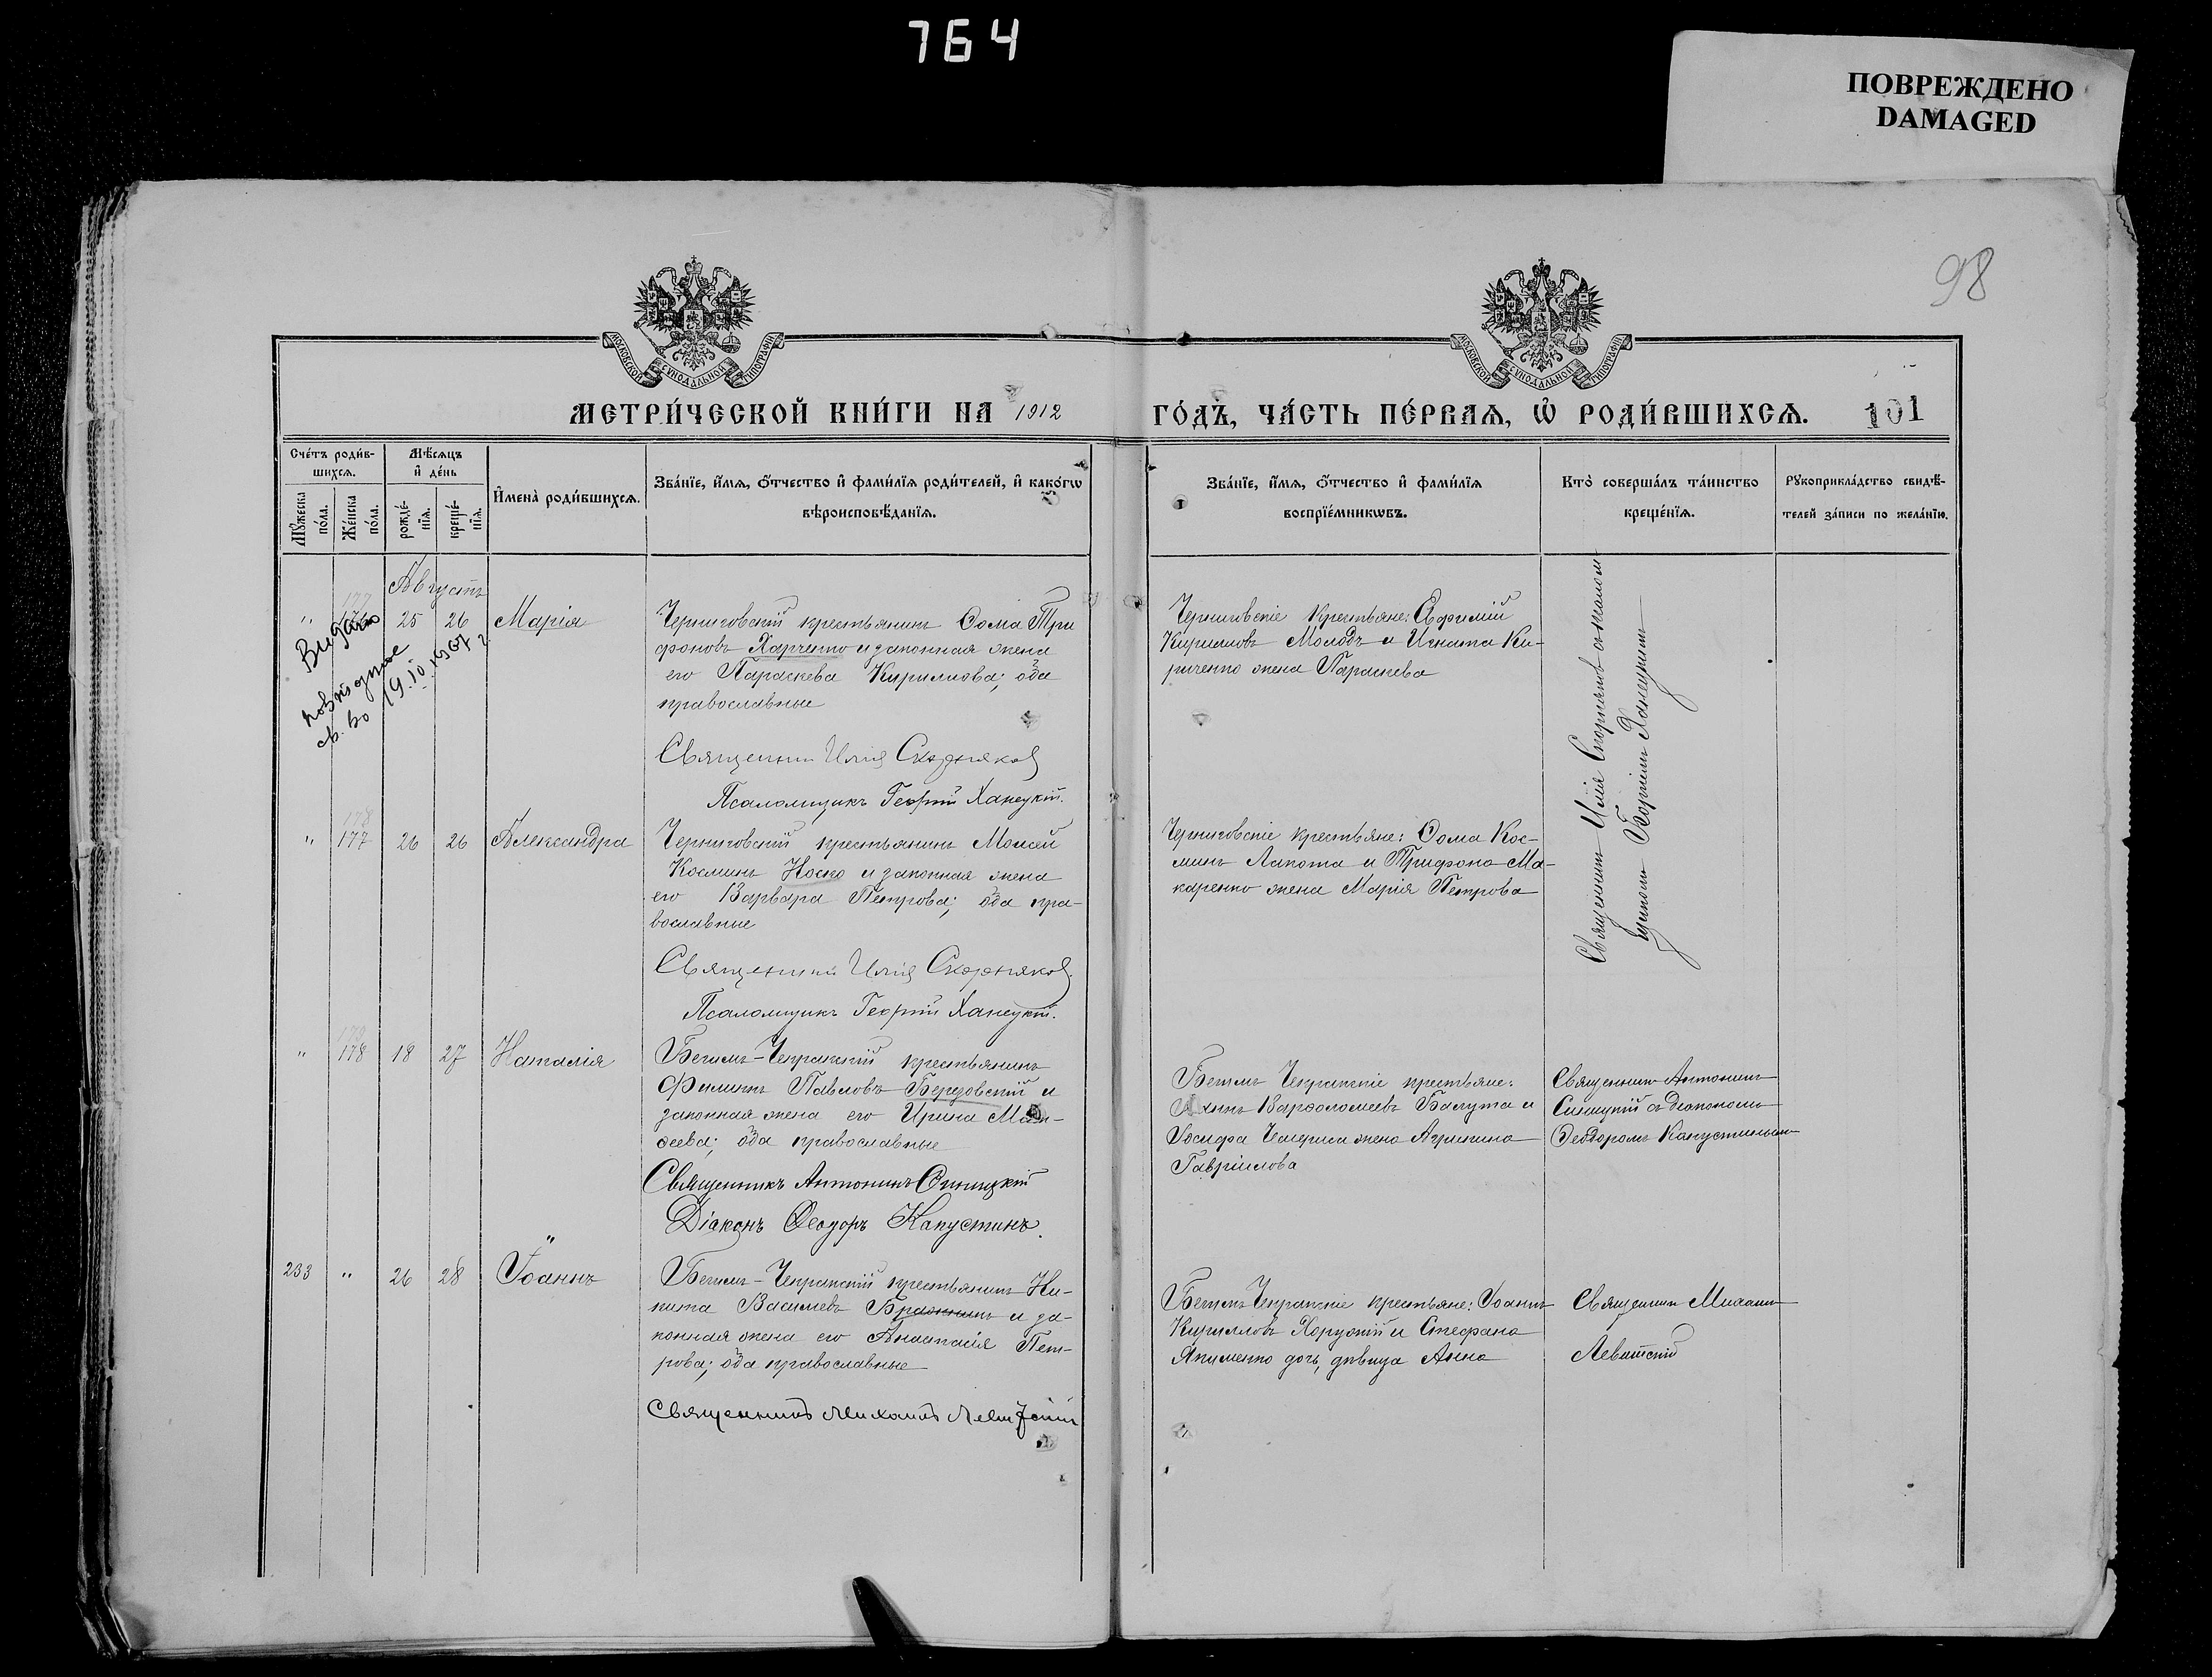 764
ПОВРЕЖДЕНО
DAMAGED
98
МОСКОВСКОЙ СѴНОДАЛЬНОЙ ТИПОГРАФІИ
МОСКОВСКОЙ СѴНОДАЛЬНОЙ ТИПОГРАФІИ
МЕТРИ́ЧЕСКОЙ КНИ́ГИ НА 1912
ГО́ДЪ, ЧА́СТЬ ПЕ́РВАѦ, Ѡ҆ РОДИ́ВШИХСѦ.
101
Сче́тъ роди́в-
шихсѧ.
Мꙋ́жеска
по́ла.
Же́нска
по́ла.
Мѣ́сѧцъ
и҆ де́нь
рожде́-
нїѧ.
креще́-
нїѧ.
И҆мена̀ роди́вшихсѧ.
Зва́нїе, и҆́мѧ, ѻ҆́тчество и҆ фами́лїѧ роди́телей, и҆ како́гѡ
вѣроисповѣ́данїѧ.
Зва́нїе, и҆́мѧ, ѻ҆́тчество и҆ фами́лїѧ
воспрїе́мникѡвъ.
Кто̀ соверша́лъ та́инство
креще́нїѧ.
Рꙋкоприкла́дство свидѣ́-
телей за́писи по жела́нїю.
Августъ
177
" 176 25 26 Марія
Видано
повторное
св.во 19.IV.1967 г.
Черниговскій крестьянинъ Ѳома Три
фоновъ Харченко и законная жена
его Параскева Кириллова; оба
православные
Священникъ Илія Скорняковъ
Псаломщикъ Георгій Ханецкій.
Черниговскіе крестьяне: Евфимій
Кирилловъ Молодъ и Игната Ки-
риченко жена Параскева
Священникъ Илія Скорняковъ съ псалом
щикомъ Георгіемъ Ханецкимъ
178
" 177 26 26 Александра
Черниговскій крестьянинъ Моисей
Косминъ Носко и законная жена
его Варвара Петрова; оба пра-
вославные
Священникъ Илія Скорняковъ.
Псаломщикъ Георгій Ханецкій.
Черниговскіе крестьяне: Ѳома Кос-
минъ Лапота и Трифона Ма-
каренко жена Марія Петрова
179
" 178 18 27 Наталія
Бегимъ-Чокракскій крестьянинъ
Филиппъ Павловъ Березовскій и
законная жена его Ирина Мат-
ѳеева; оба православные
Священникъ Антонинъ Синицкій
Діаконъ Ѳеодоръ Капустинъ.
Бегимъ Чокракскіе крестьяне:
Варѳоломеевъ Балута и
Іосифа жена Агрипина
Гавріилова
Священникъ Антонинъ
Синицкій съ діакономъ
Ѳеодоромъ Капустинымъ
"
233 " 26 28 Іоаннъ
Бегимъ-Чокракскій крестьянинъ Ни-
кита Васильевъ и за-
конная жена его Анастасія Пет-
рова; оба православные
Священникъ Михаилъ Левитскій
Бегимъ Чокракскіе крестьяне: Іоаннъ
Кирилловъ Хорунжій и Стефана
Якименко дочь, дѣвица Анна
Священникъ Михаилъ
Левитскій